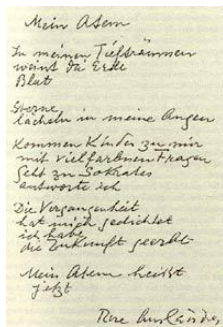 Mein Atem
In meinen Tiefträumen
weint die Erde
Blut
Sterne
lächeln in meine Augen
Kommen Kinder zu mir
mit vielfarbnen Fragen
Geht zu Sokrates
antworte ich
Die Vergangenheit
hat mich gedichtet
ich habe
die Zukunft geerbt
Mein Atem heißt
jetzt
Rose Ausländer